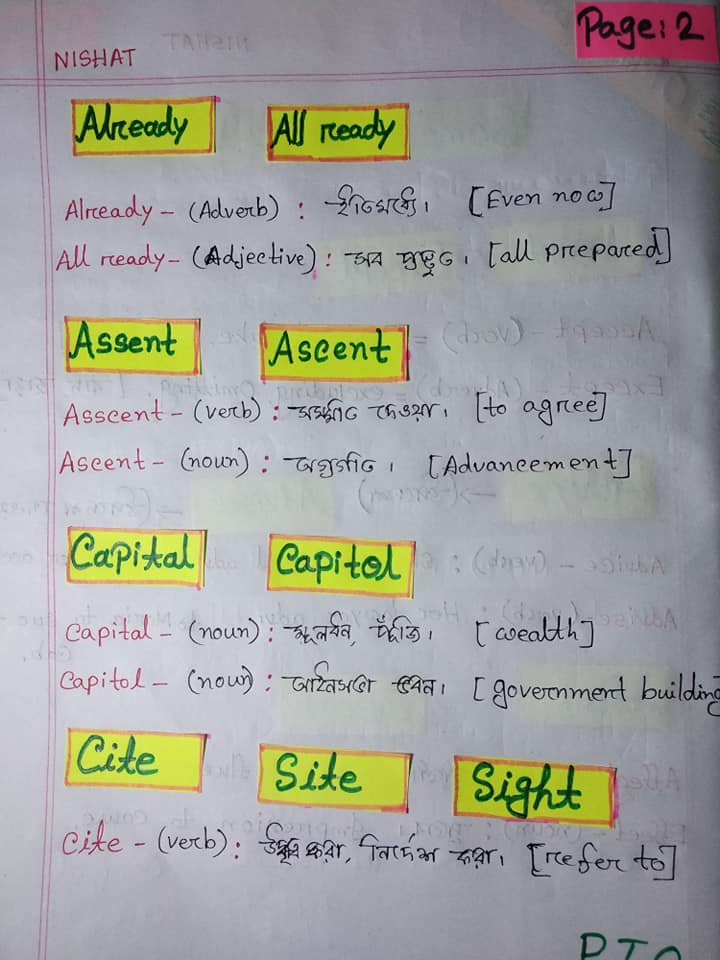 Page: 2
NISHAT
Already All ready
Already - (Adverb) : ইতিমধ্যে। [Even now]
All ready - (Adjective) : সব প্রস্তুত। [all prepared]
Assent Ascent
Asscent - (verb) : সম্মতি দেওয়া। [to agree]
Ascent - (noun) : অগ্রগতি। [Advancement]
Capital Capitol
Capital - (noun) : মূলধন, পুঁজি। [wealth]
Capitol - (noun) : আইনসভা ভবন। [government building
Cite Site Sight
Cite - (verb) : উদ্ধৃত করা, নির্দেশ করা। [refer to]
PTO